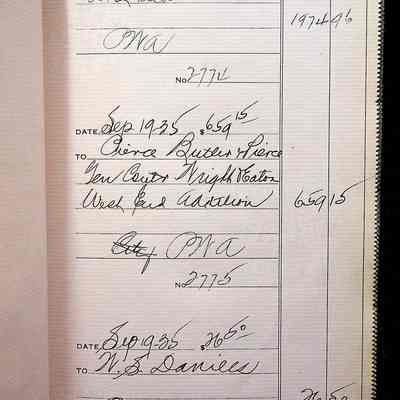 1974 96
PWA
No 2774
DATE, Sep 19-35 $659 15
TO Pierce Butler & Pierce
Gen Contr Wright & Eaton
West End Addition 659 15
City PWA
No 2775
DATE, Sep 19-35 $26 50
TO W. S. Daniels
26 50